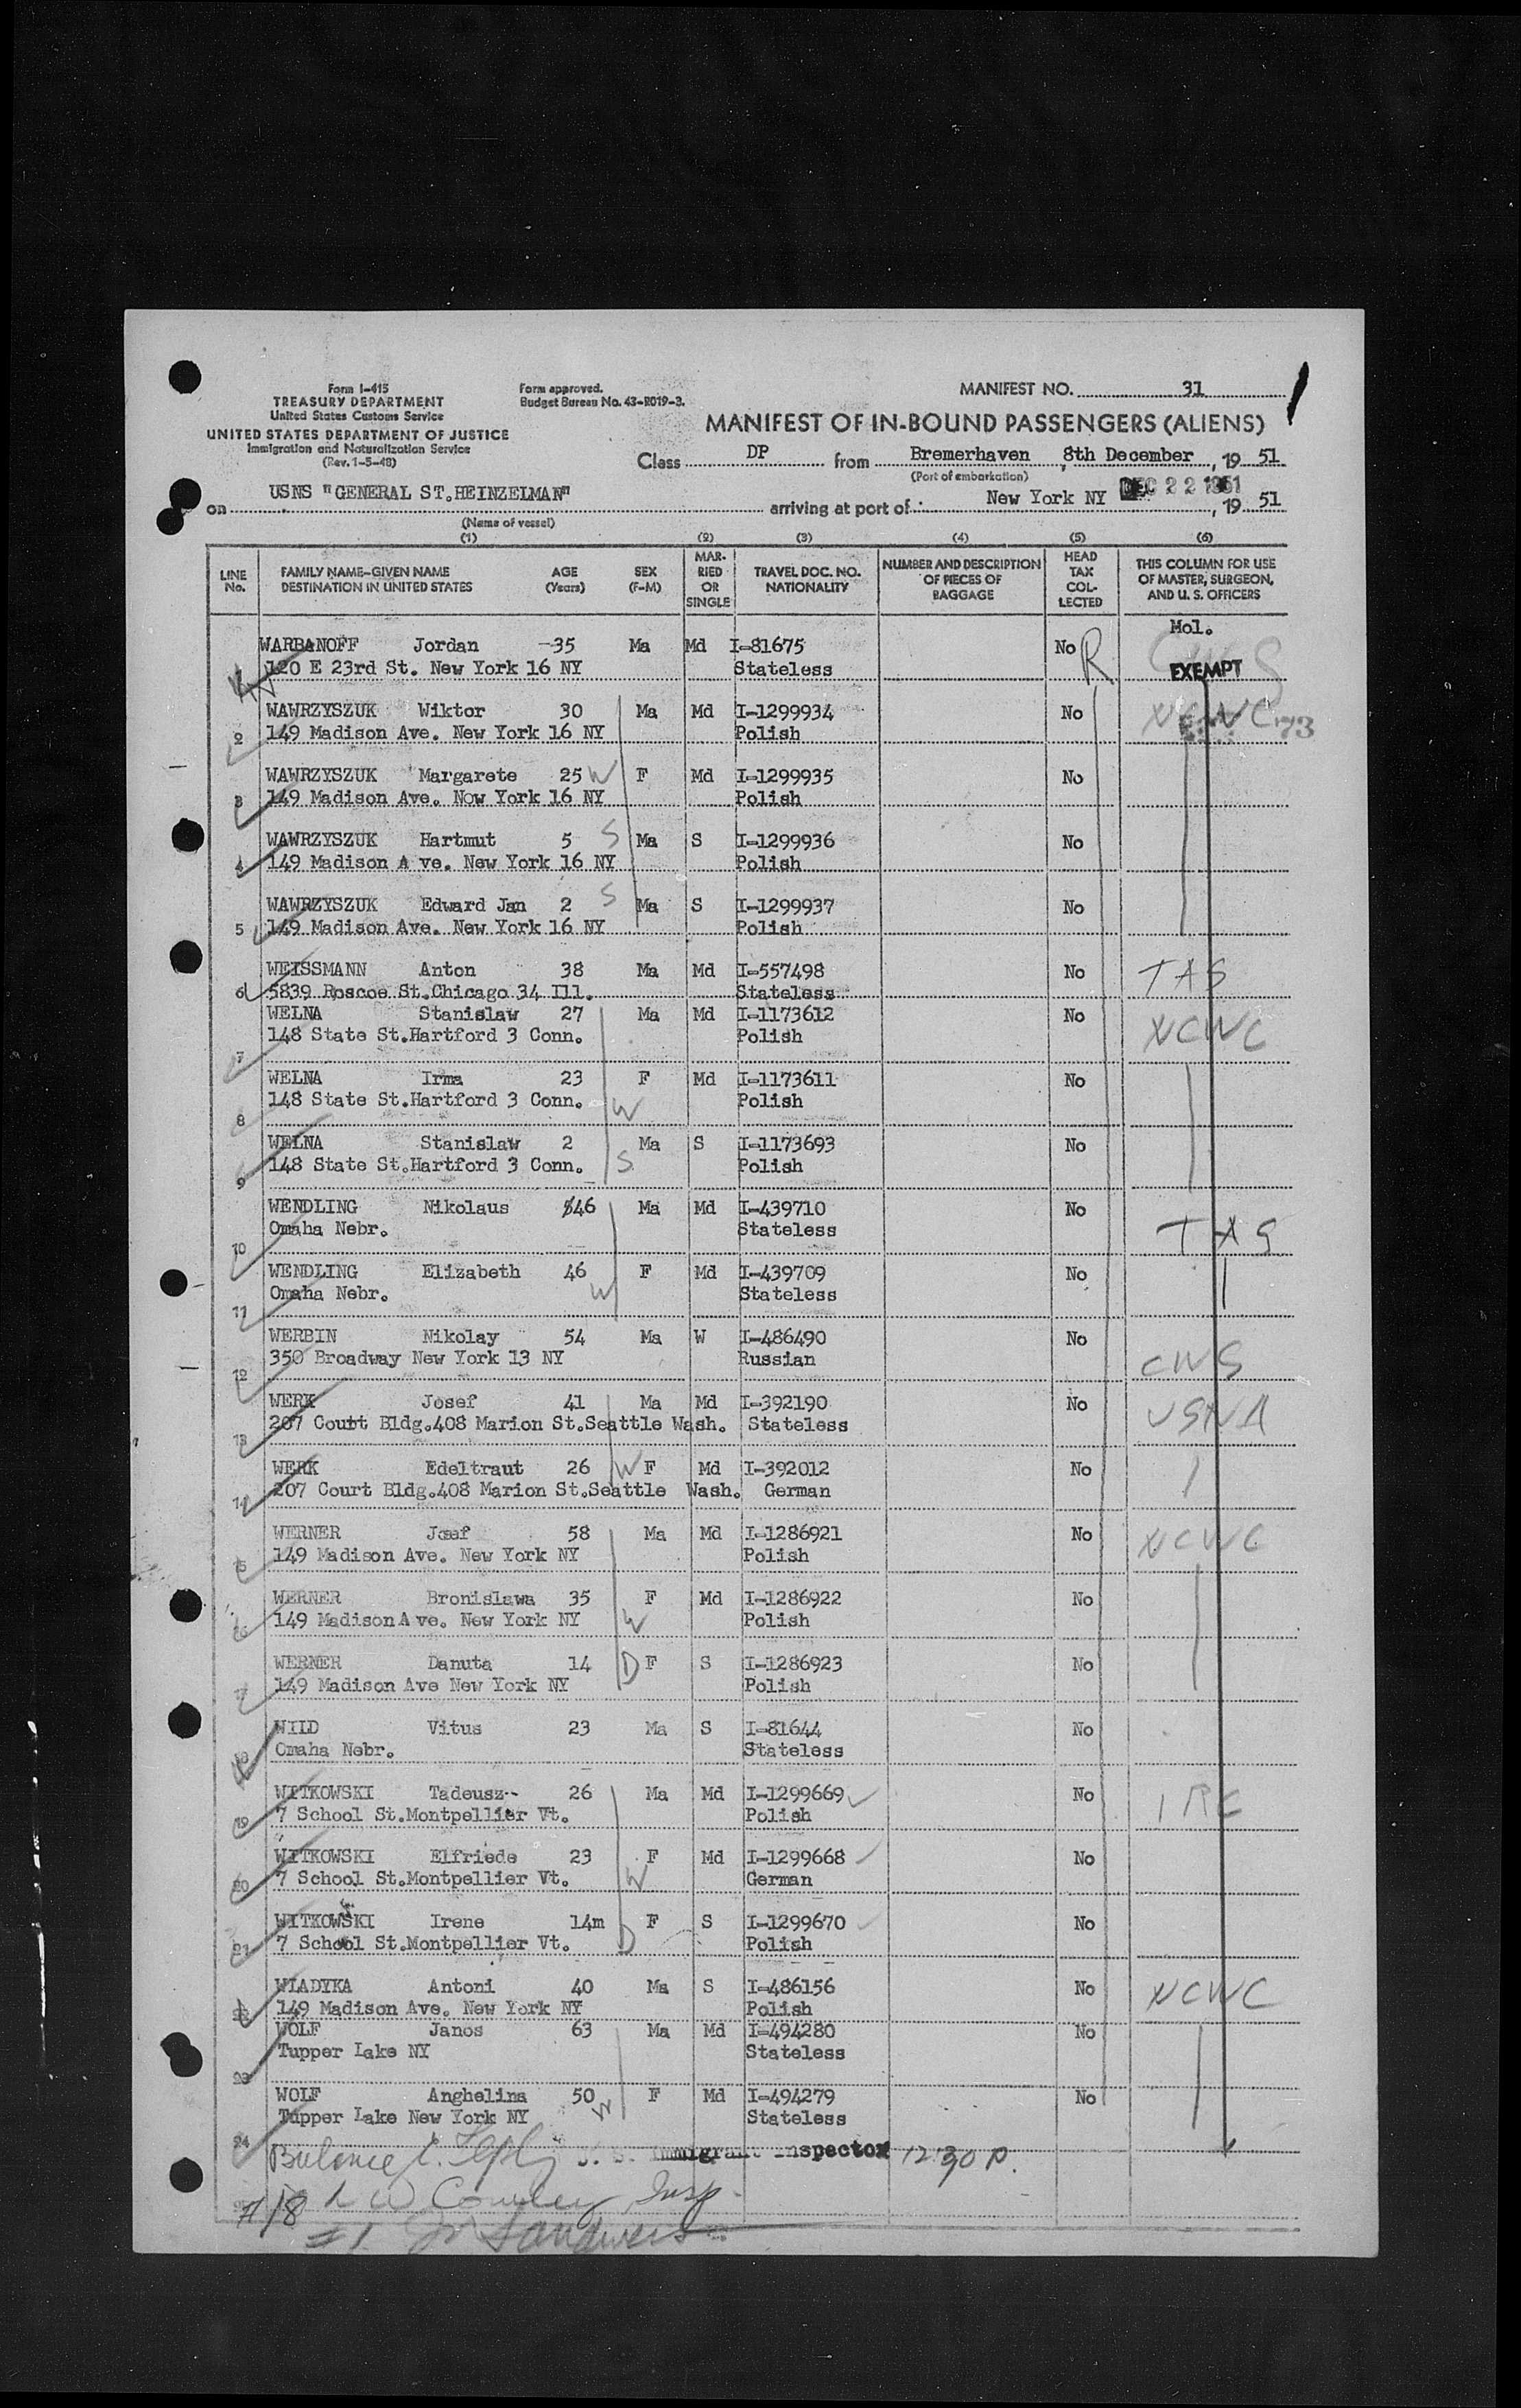 Form I-415
TREASURY DEPARTMENT
United States Customs Service
UNITED STATES DEPARTMENT OF JUSTICE
Immigration and Naturalization Service
(Rev. 1-5-48)
Form approved.
Budget Bureau No. 43-R019-3.
MANIFEST NO. 31
MANIFEST OF IN-BOUND PASSENGERS (ALIENS)
Class DP from Bremerhaven , 8th December , 19 51
(Port of embarkation)
on USNS "GENERAL ST.HEINZELMAN" arriving at port of New York NY DEC 22 1951 , 19 51
(Name of vessel)
(1) (2) (3) (4) (5) (6)
LINE No. FAMILY NAME-GIVEN NAME DESTINATION IN UNITED STATES AGE (Years) SEX (F-M) MAR-RIED OR SINGLE TRAVEL DOC. NO. NATIONALITY NUMBER AND DESCRIPTION OF PIECES OF BAGGAGE HEAD TAX COL-LECTED THIS COLUMN FOR USE OF MASTER, SURGEON, AND U. S. OFFICERS
WARBANOFF Jordan -35 Ma Md I-81675 No R Mol. CWS
120 E 23rd St. New York 16 NY Stateless EXEMPT
WAWRZYSZUK Wiktor 30 Ma Md I-1299934 No NCWC
2 149 Madison Ave. New York 16 NY Polish
WAWRZYSZUK Margarete 25 W F Md I-1299935 No
3 149 Madison Ave. New York 16 NY Polish
WAWRZYSZUK Hartmut 5 S Ma S I-1299936 No
4 149 Madison A ve. New York 16 NY Polish
WAWRZYSZUK Edward Jan 2 S Ma S I-1299937 No
5 149 Madison Ave. New York 16 NY Polish
WEISSMANN Anton 38 Ma Md I-557498 No TAS
6 5839 Roscoe St.Chicago 34 Ill. Stateless
WELNA Stanislaw 27 Ma Md I-1173612 No NCWC
7 148 State St.Hartford 3 Conn. Polish
WELNA Irma 23 F Md I-1173611 No
8 148 State St.Hartford 3 Conn. W Polish
WELNA Stanislaw 2 Ma S I-1173693 No
9 148 State St.Hartford 3 Conn. S Polish
WENDLING Nikolaus 46 Ma Md I-439710 No
10 Omaha Nebr. Stateless TAS
WENDLING Elizabeth 46 F Md I-439709 No
11 Omaha Nebr. W Stateless
WERBIN Nikolay 54 Ma W I-486490 No
12 350 Broadway New York 13 NY Russian CWS
WERK Josef 41 Ma Md I-392190 No USNA
13 207 Court Bldg.408 Marion St.Seattle Wash. Stateless
WERK Edeltraut 26 W F Md I-392012 No
14 207 Court Bldg.408 Marion St.Seattle Wash. German
WERNER Josef 58 Ma Md I-1286921 No NCWC
15 149 Madison Ave. New York NY Polish
WERNER Bronislawa 35 F Md I-1286922 No
16 149 Madison A ve. New York NY W Polish
WERNER Danuta 14 D F S I-1286923 No
17 149 Madison Ave New York NY Polish
WILD Vitus 23 Ma S I-81644 No
18 Omaha Nebr. Stateless
WITKOWSKI Tadeusz 26 Ma Md I-1299669 No IRC
19 7 School St.Montpellier Vt. Polish
WITKOWSKI Elfriede 23 F Md I-1299668 No
20 7 School St.Montpellier Vt. W German
WITKOWSKI Irene 14m F S I-1299670 No
21 7 School St.Montpellier Vt. D Polish
WIADYKA Antoni 40 Ma S I-486156 No NCWC
22 149 Madison Ave. New York NY Polish
WOLF Janos 63 Ma Md I-494280 No
23 Tupper Lake NY Stateless
WOLF Anghelina 50 W F Md I-494279 No
24 Tupper Lake New York NY Stateless
Immigrant Inspector 12 30 P.
Insp.